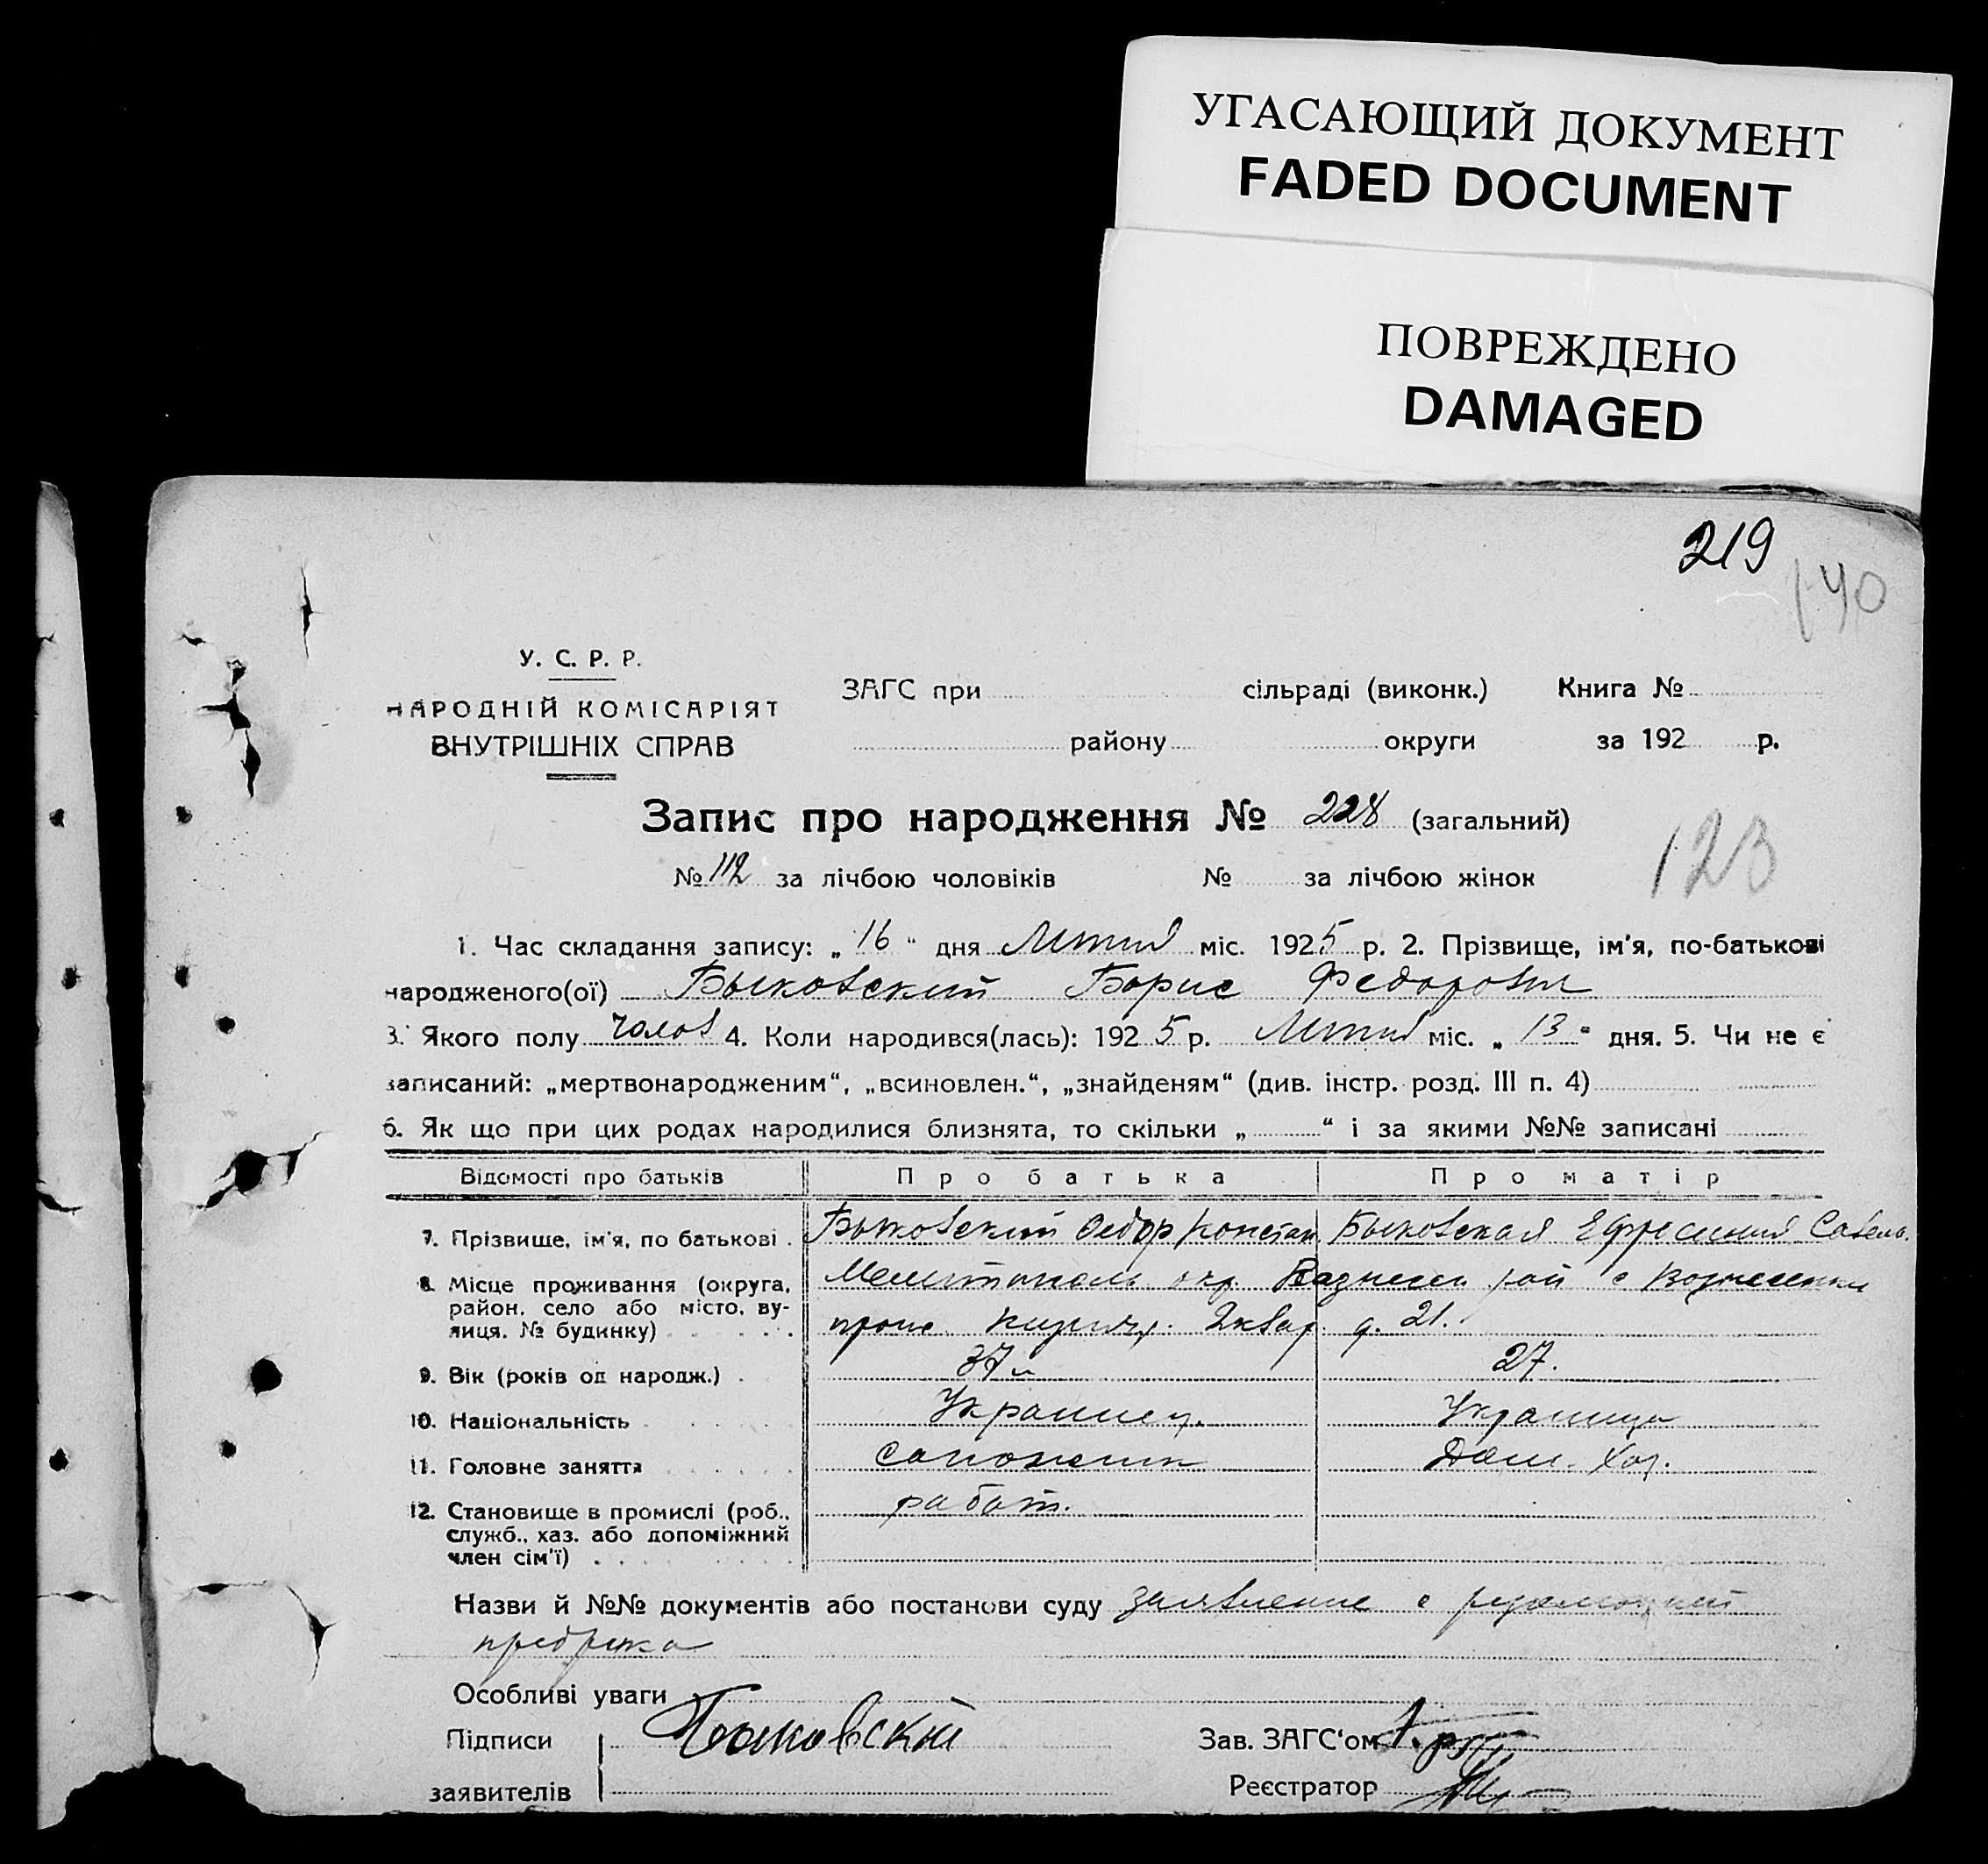 УГАСАЮЩИЙ ДОКУМЕНТ
FADED DOCUMENT
ПОВРЕЖДЕНО
DAMAGED
219
140
У. С. Р. Р.
НАРОДНІЙ КОМІСАРІЯТ
ВНУТРІШНІХ СПРАВ
ЗАГС при сільраді (виконк.) Книга №
району округи за 192 р.
Запис про народження № 228 (загальний)
123
№ 112 за лічбою чоловіків № за лічбою жінок
1. Час складання запису: „ 16 “ дня міс. 1925 р. 2. Прізвище, ім'я, по-батькові
народженого(ої) Быковский Борис Федоровил
3. Якого полу чолов 4. Коли народився(лась): 1925 р. міс. „ 13 “ дня. 5. Чи не є
записаний: „мертвонародженим“, „всиновлен.“, „знайденям“ (див. інстр. розд. III п. 4)
6. Як що при цих родах народилися близнята, то скільки „ “ і за якими №№ записані
Відомості про батьків Про батька Про матір
7. Прізвище, ім'я, по батькові . Быковский Федор Констан. Быковская Ефросиния Савель.
8. Місце проживання (округа, Мелитополь окр. Вознесен рай с Вознесенка
район, село або місто, ву-
лиця, № будинку) 2 квар д. 21.
9. Вік (років од народж.) 37 27.
10. Національність Украинец. Украинца
11. Головне заняття сапожник Дом. Хоз.
12. Становище в промислі (роб., работ.
служб., хаз. або допоміжний
член сім'ї)
Назви й №№ документів або постанови суду заявление с
Особливі уваги
Підписи Быковскій Зав. ЗАГС'ом
заявителів Реєстратор